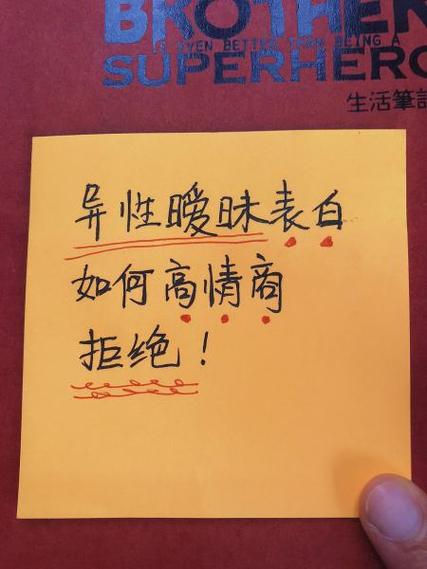 BROTHER
IS EVEN BETTER THAN BEING A
SUPERHERO
生活筆記
异性暧昧表白
如何高情商
拒绝！